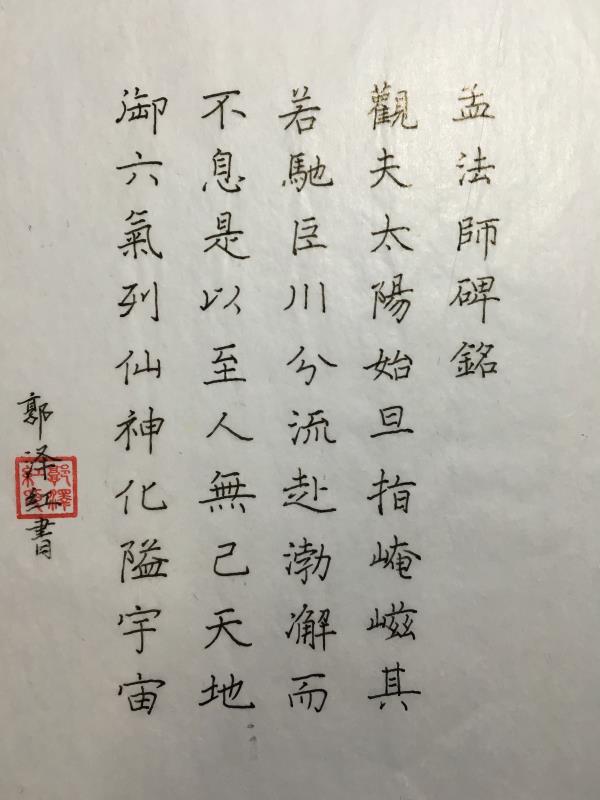 孟法師碑銘
觀夫太陽始旦指崦嵫其
若馳巨川分流赴渤澥而
不息是以至人無己天地
御六氣列仙神化隘宇宙
郭泽红書